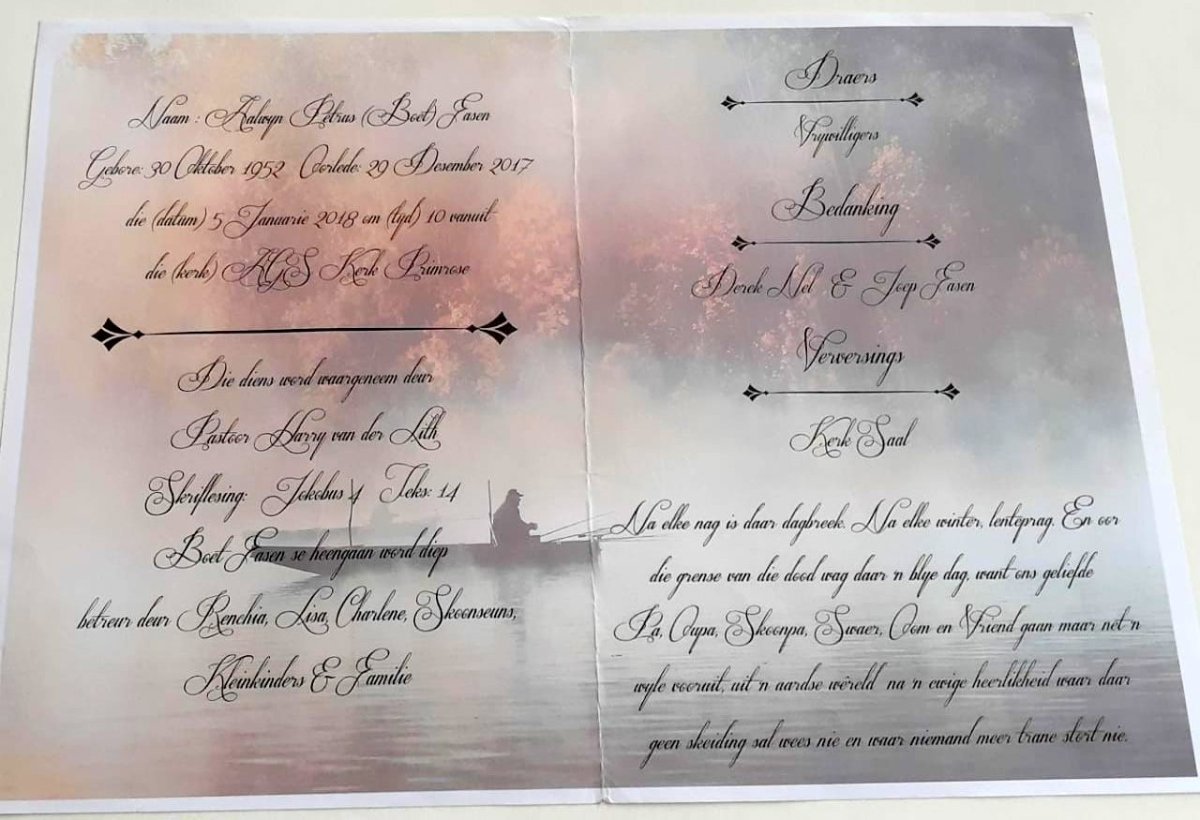 Naam : Aalwyn Petrus (Boet) Easen
Gebore: 30 Oktober 1952 Oorlede: 29 Desember 2017
die (datum) 5 Januarie 2018 om (tyd) 10 vanuit
die (kerk) AGS Kerk Primrose
Die diens word waargeneem deur
Pastoor Harry van der Lith
Skriflesing: Jokobus 4 Teks: 14
Boet Easen se heengaan word diep
betreur deur Renchia, Lisa, Charlene, Skoonseuns,
Kleinkinders & Familie
Draers
Vrywilligers
Bedanking
Derek Nel & Joep Easen
Verversings
Kerk Saal
Na elke nag is daar dagbreek. Na elke winter, lenteprag. En oor
die grense van die dood wag daar 'n blye dag, want ons geliefde
Pa, Oupa, Skoonpa, Swaer, Oom en Vriend gaan maar net 'n
wyle vooruit, uit 'n aardse wêreld na 'n ewige heerlikheid waar daar
geen skeiding sal wees nie en waar niemand meer trane stort nie.